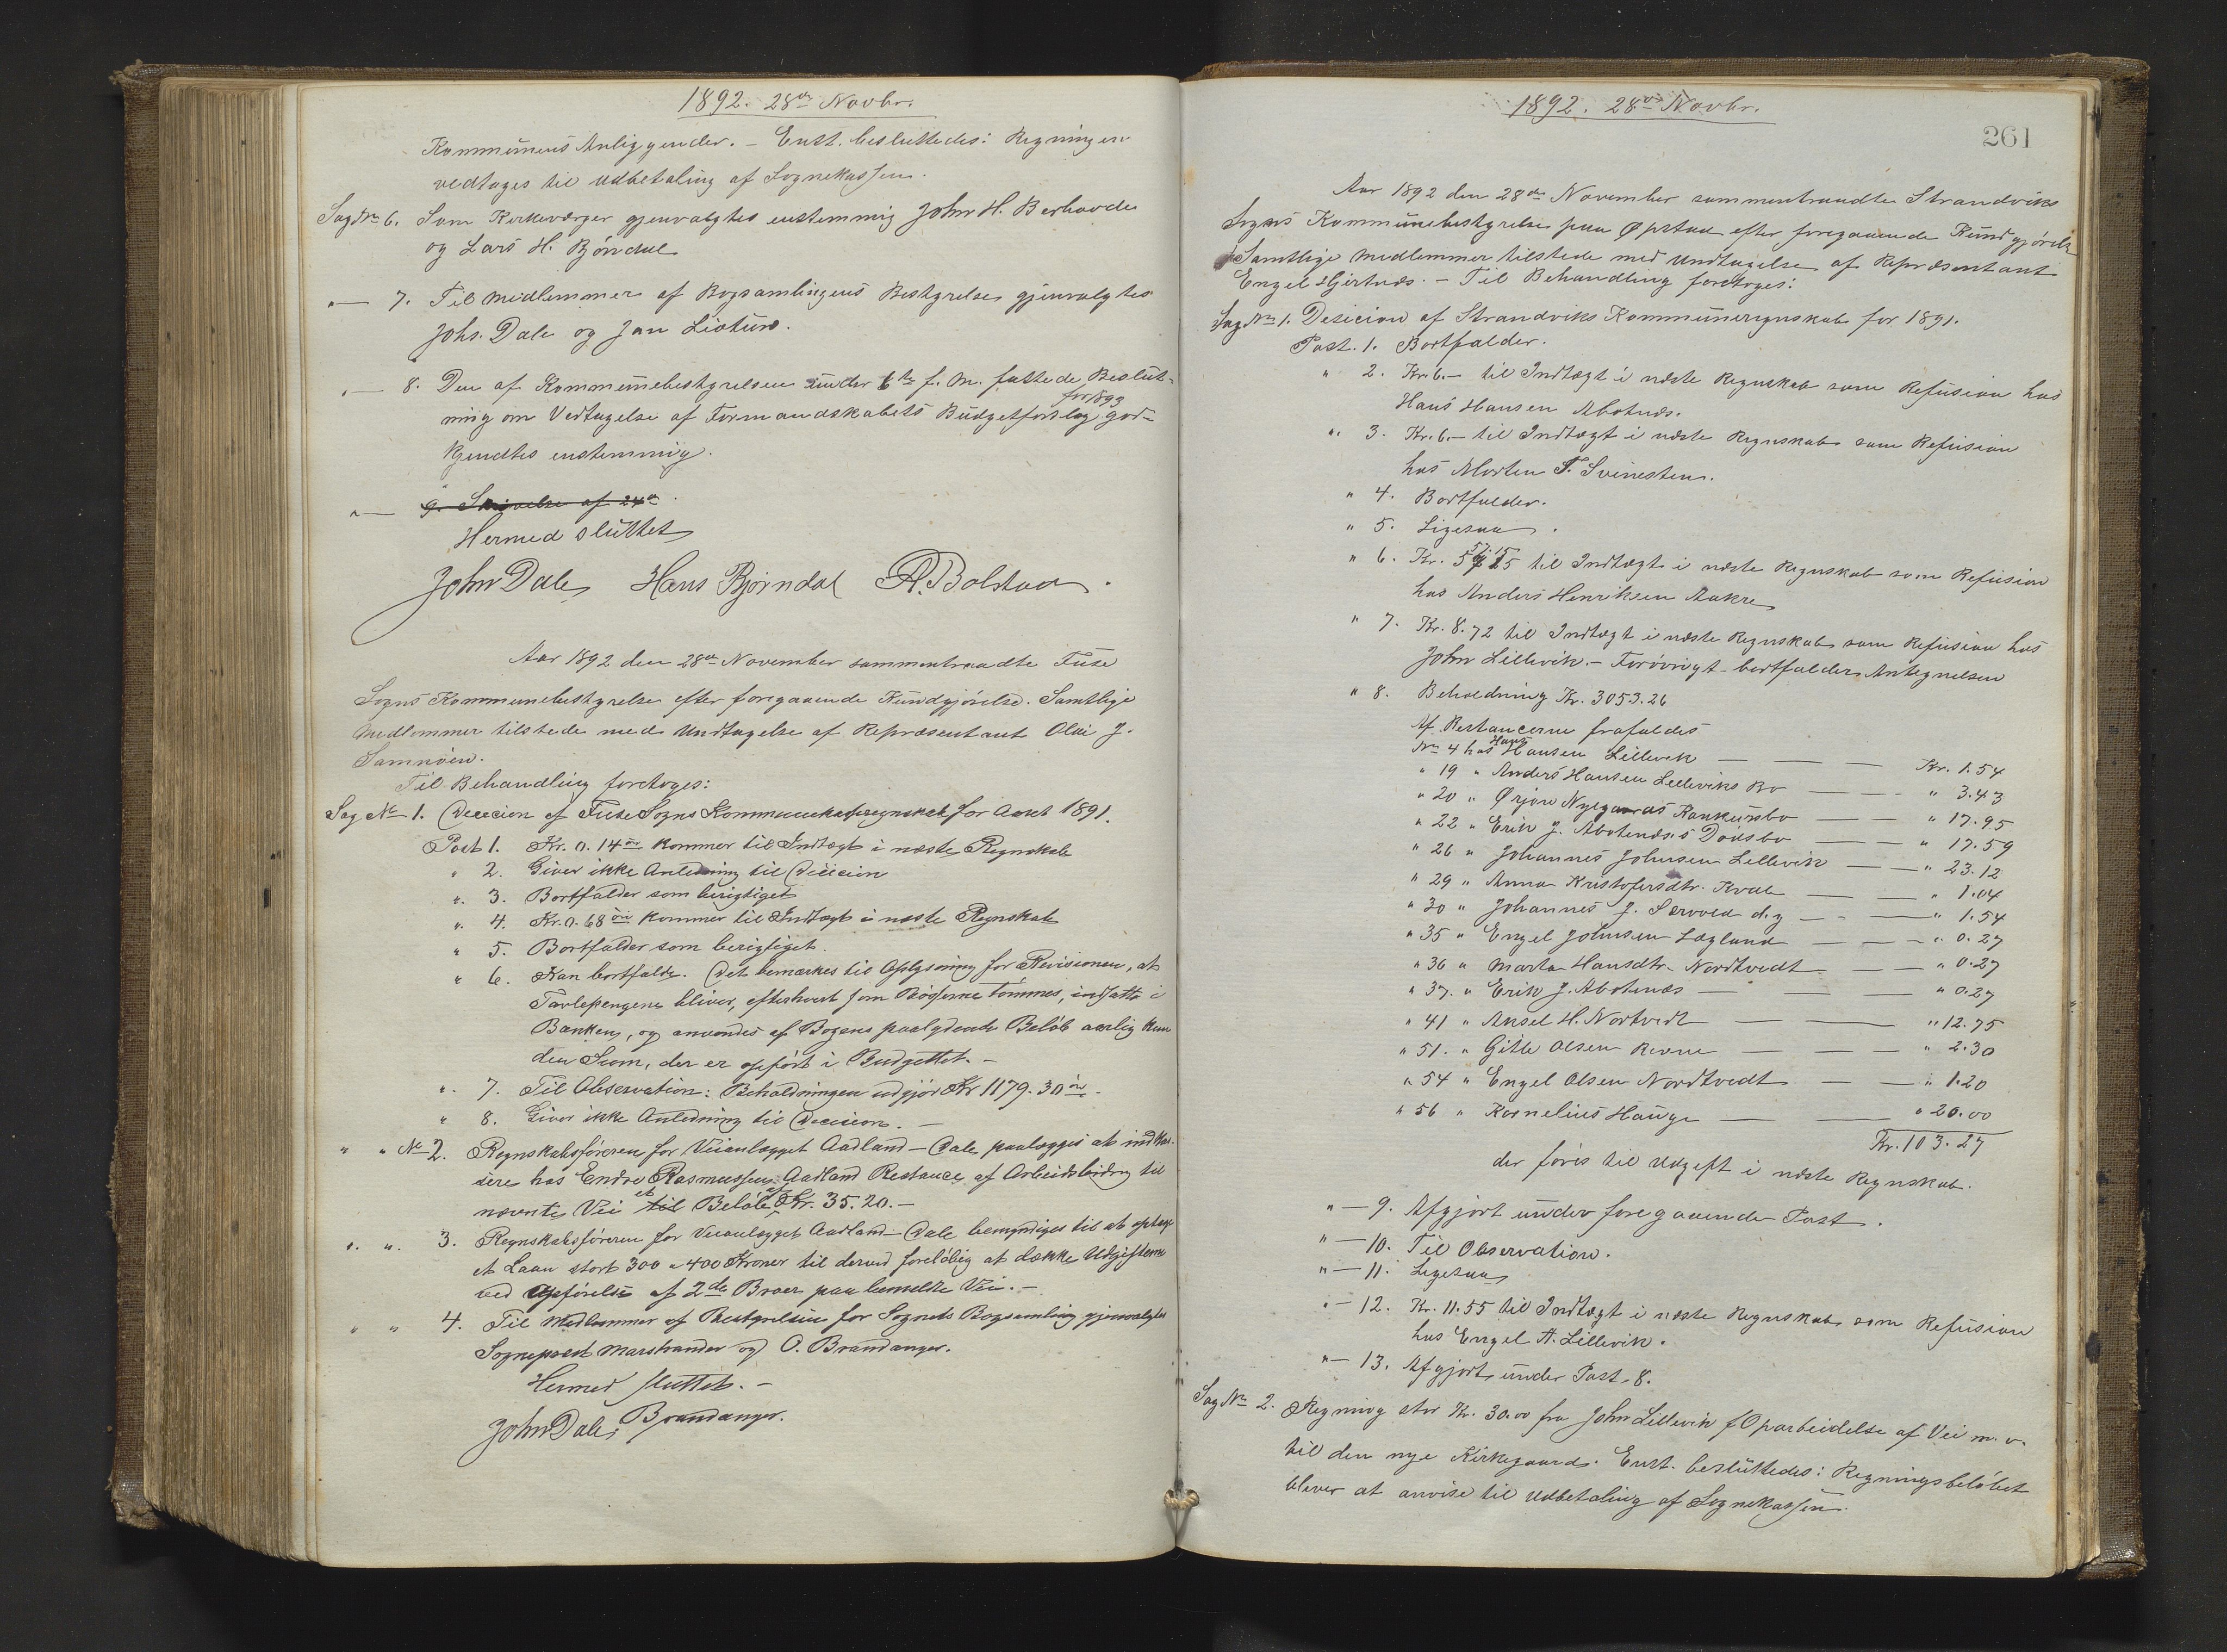 1892. 28de Novbr.
Kommunens Anliggender. – Enst. besluttedes: Regningen
vedtages til Udbetaling af Sognekassen.
Sag No 6. Som Kirkeværger gjenvalgtes enstemmig John H. Berhovde
og Lars H. Bjørndal
" — 7. Til Medlemmer af Bogsamlingens Bestyrelse gjenvalgtes
Johs. Dale og Jan Liotun.
" — 8. Den af Kommunebestyrelsen under 6te f. M. fattede Beslut-
ning om Vedtagelse af Formandskabets Budgetforslag for 1893 god-
kjendtes enstemmig.
" — 9. Skrivelse af 24de
Hermed sluttet
John Dale Hans Bjørndal A. Bolstad.
Aar 1892 den 28de November sammentraadte Fuse
Sogns Kommunebestyrelse efter foregaaende Kundgjørelse. Samtlige
Medlemmer tilstede med Undtagelse af Repræsentant Olai J.
Samnøen.
Til Behandling foretoges:
Sag No 1. Decision af Fuse Sogns Kommunekasseregnskab for Aaret 1891.
Post 1. Kr. 0.14 øre kommer til Indtægt i næste Regnskab
" 2. Giver ikke Anledning til Decision
". 3. Bortfalder som berigtiget
". 4. Kr. 0.68 øre kommer til Indtægt i næste Regnskab
" 5. Bortfalder som berigtiget.
" 6. Kan bortfalde. Det bemærkes til Oplysning for Revisionen, at
Tavlepengene bliver, efterhvert som Bøsserne tømmes, indsatte i
Banken, og anvendes af Bogens paalydende Beløb aarlig kun
den Sum, der er opført i Budgettet. –
". 7. Til Observation: Beholdningen udgjør Kr 1179.30 øre.
" 8. Giver ikke Anledning til Decision. –
" " No 2. Regnskabsføreren for Veianlægget Aadland – Dale paalægges at indkas-
sere hos Endre Rasmussen Aadland Restance af Arbeidsbidrag til
nævnte Vei til et Beløb af Kr. 35.20. –
". ". 3. Regnskabsføreren for Veianlægget Aadland – Dale bemyndiges til at optage
et Laan stort 300 a 400 Kroner til dermed foreløbig at dække Udgifterne
ved Opførelse af 2de Broer paa bemeldte Vei. –
" " 4. Til Medlemmer af Bestyrelsen for Sognets Bogsamling gjenvalgtes
Sogneprest Marstrander og O. Brandanger.
Hermed sluttet. –
John Dale, Brandanger.
1892. 28de Novbr.
261
Aar 1892 den 28de November sammentraadte Strandviks
Sogns Kommunebestyrelse paa Øpstad efter foregaaende Kundgjørelse
Samtlige Medlemmer tilstede med Undtagelse af Repræsentant
Engel Gjertnæs. – Til Behandling foretoges:
Sag No 1. Desicion af Strandviks Kommuneregnskab for 1891.
Post. 1. Bortfalder.
" 2. Kr. 6.– til Indtægt i næste Regnskab som Refusion hos
Hans Hansen Abotnæs.
". 3. Kr. 6.– til Indtægt i næste Regnskab som Refusion
hos Morten T. Svinesten.
" 4. Bortfalder.
" 5. Ligesaa.
" 6. Kr. 57.15 til Indtægt i næste Regnskab som Refusion
hos Anders Henriksen Aakre
" 7. Kr. 8.72 til Indtægt i næste Regnskab som Refusion hos
John Lillevik. – Forøvrigt bortfalder Antegnelsen
" 8. Beholdning Kr. 3053.26
Af Restancerne frafaldes
No 4 hos Hans Hansen Lillevik — — — Kr. 1.54
" 19 " Anders Hansen Lilleviks Bo — — " 3.43
" 20 " Ørjan Nygaards Konkursbo — — " 17.95
" 22 " Erik J. Abotnæs's Dødsbo — — " 17.59
" 26 " Johannes Johnsen Lillevik — — " 23.12
" 29 " Anna Kristofersdtr. Kvale — — " 1.04
" 30 " Johannes J. d.y — — " 1.54
" 35 " Engel Johnsen Lægland — — " 0.27
" 36 " Marta Hansdtr. Nordtvedt — — " 0.27
" 37. " Erik J. Abotnæs — — — " 0.27
" 41 " Ansel H. Nortvedt — — " 12.75
" 51. " Gitle Olsen Revne — — — " 2.30
" 54 " Engel Olsen Nordtvedt — — " 1.20
" 56 " Kornelius Hauge — — " 20.00
Kr. 103.27
der føres til Udgift i næste Regnskab.
" — 9. Afgjort under foregaaende Post.
" — 10. Til Observation.
" — 11. Ligesaa
" — 12. Kr. 11.55 til Indtægt i næste Regnskab som Refusion
hos Engel A. Lillevik.
" — 13. Afgjort under Post 8.
Sag No 2. Regning stor Kr. 30.00 fra John Lillevik f Oparbeidelse af Vei m. v.
til den nye Kirkegaard. Enst. besluttedes: Regningsbeløbet
bliver at anvise til Udbetaling af Sognekassen.